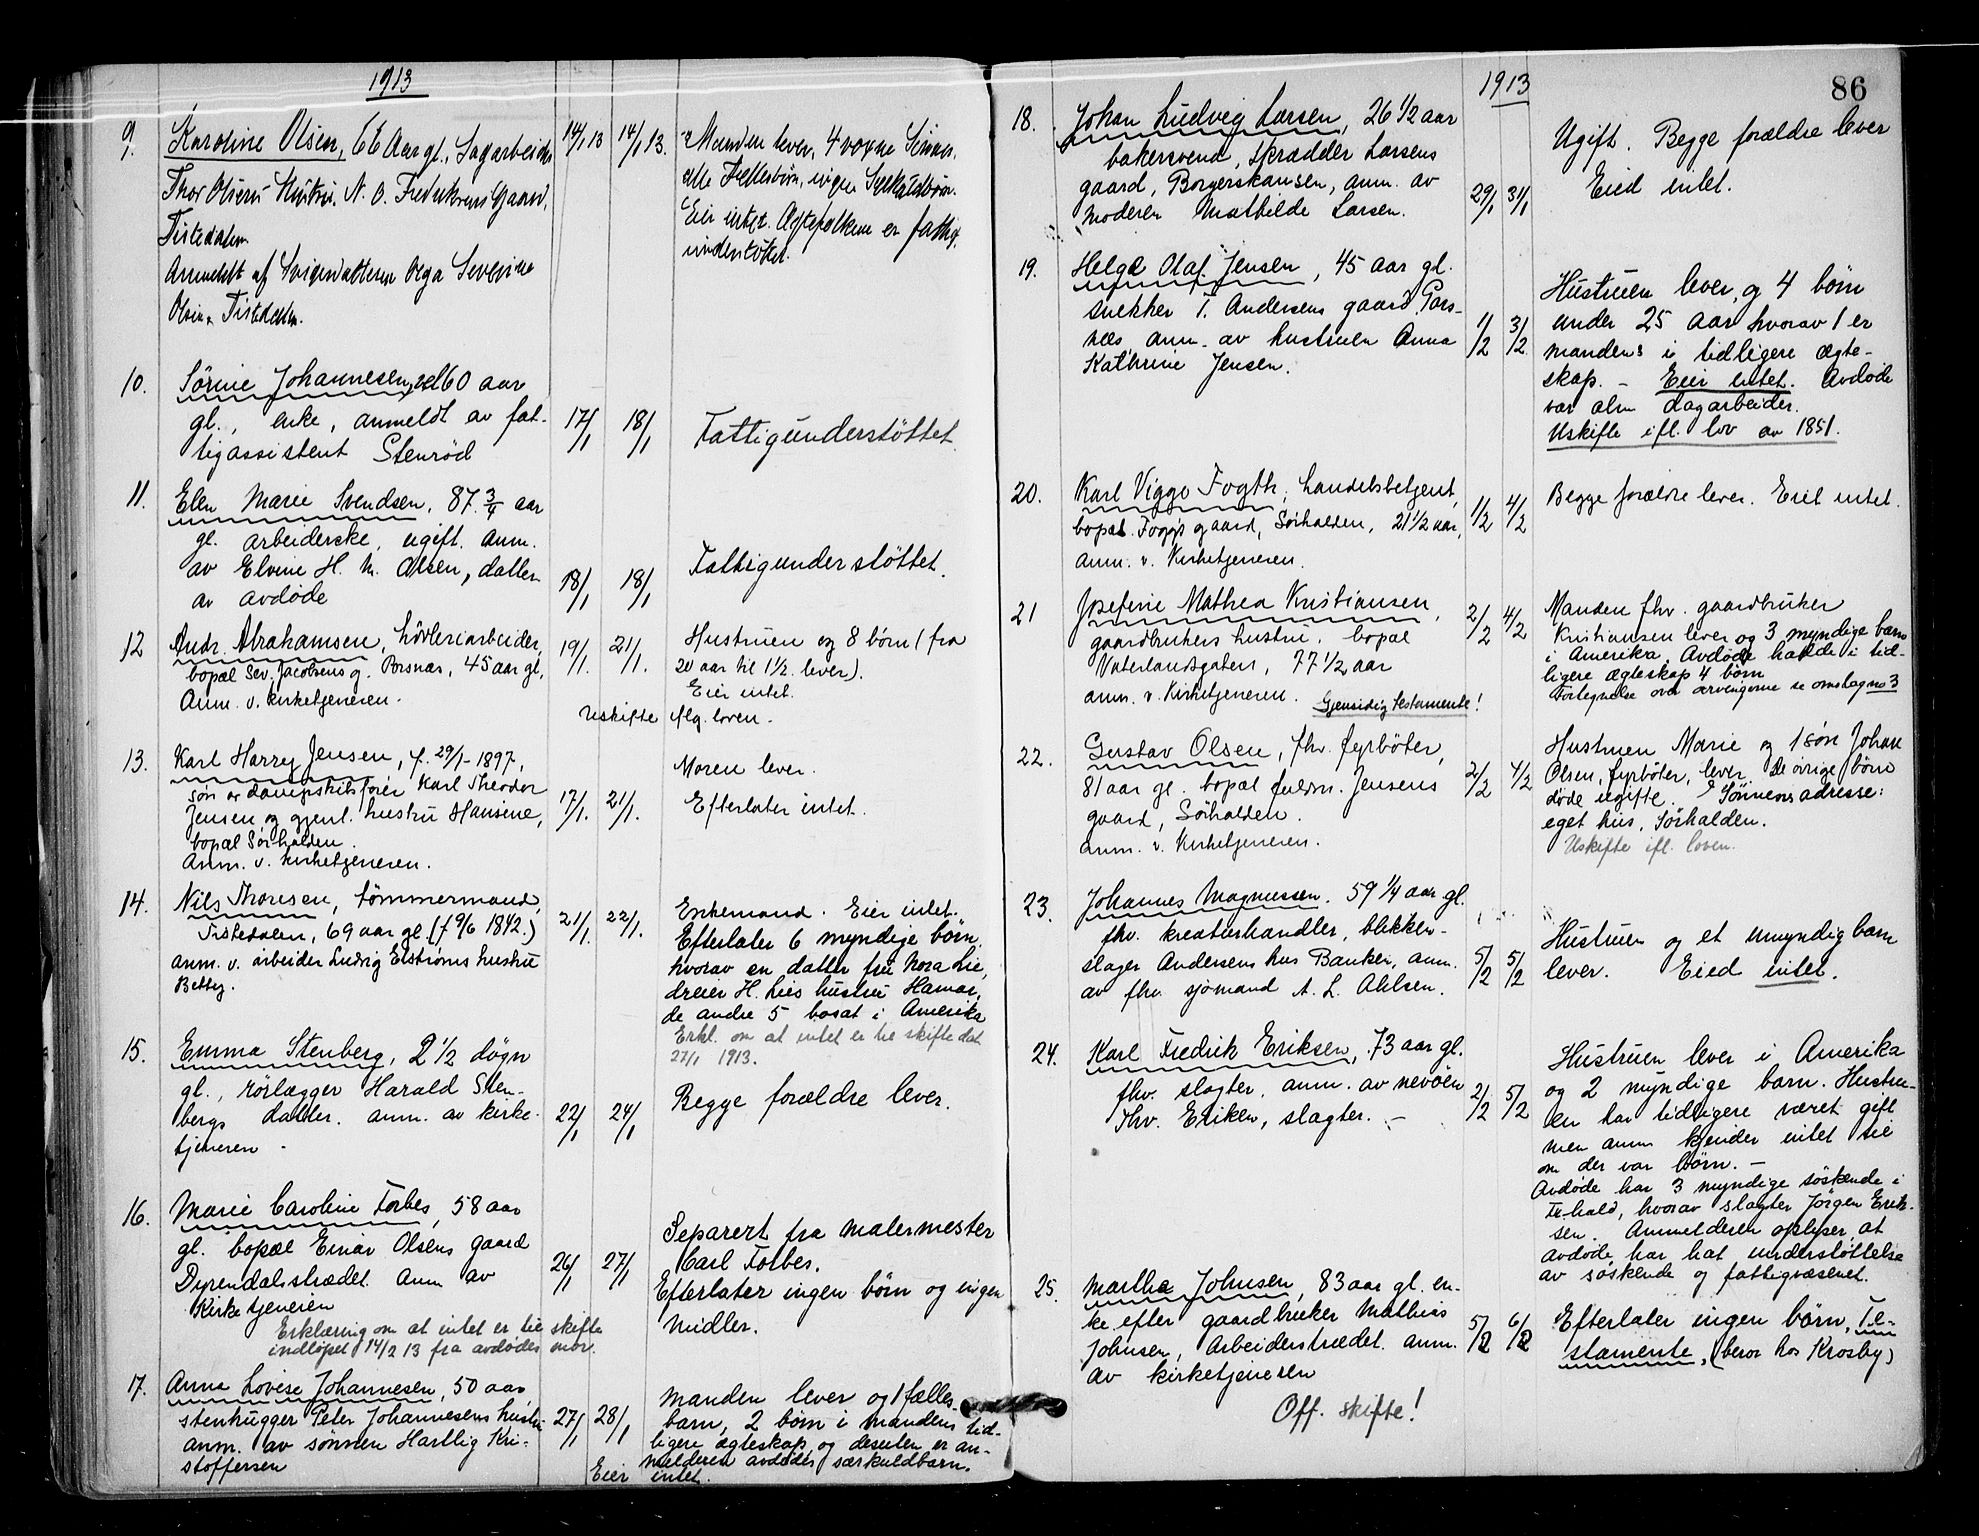 1913
9. Karoline Olsen, 66 Aar gl., Sagarbeider
Thor Olsens Hustru. N. O. Fredriksens Gaard,
Tistedalen.
Anmeldt af Svigerdatteren Olga Severine
Olsen, Tistedalen.
14/1 13 14/1 13.
Manden lever, 4 voxne Sönner.
alle Fællesbörn, ingen Særkuldbörn.
Eier intet. Ægtefolkene er fattig-
understöttet.
10. Sörine Johannesen, 60 aar
gl., enke, anmeldt av fat-
tigassistent Stenröd
17/1 18/1
Fattigunderstöttet
11. Elen Marie Svendsen, 87 3/4 aar
gl. arbeiderske, ugift. anm.
av Elvine H. M. Olsen, datter
av avdöde
18/1 18/1
Fattigunderstöttet.
12 Andr. Abrahamsen, hövleriarbeider,
bopæl Sev. Jacobsens g. Porsnæs, 45 aar gl,
Anm. v. kirketjeneren.
19/1. 21/1.
Hustruen og 8 börn (fra
20 aar til 1 1/2. lever).
Eier intet.
Uskifte flg. loven.
13. Karl Harry Jensen, f. 29/1-1897,
sön av dampskibsförer Karl Theodor
Jensen og gjenl. hustru Hansine,
bopæl Sörhalden.
Anm. v. kirketjeneren.
17/1. 21/1.
Moren lever.
Efterlater intet.
14. Nils Thoresen, tömmermand,
Tistedalen, 69 aar gl. (f 9/6 1842.)
anm. v. arbeider Ludvig Elströms hustru
Betty.
21/1. 22/1.
Enkemand. Eier intet.
Efterlater 6 myndige börn,
hvorav en datter fru Nora Lie,
dreier H. Lies hustru Hamar,
de andre 5 bosat i Amerika
Erkl. om at intet er til skifte dat
27/1 1913.
15. Emma Stenberg, 2 1/2 dögn
gl., rörlægger Harald Sten-
bergs datter. anm. av kirke-
tjeneren -
22/1 24/1
Begge forældre lever.
16. Marie Caroline Forbes, 58 aar
gl. bopæl Einar Olsens gaard
Dyrendalsstrædet. Anm av
Kirketjeneren
26/1 27/1
Separert fra malermester
Carl Forbes.
Efterlater ingen börn og ingen
midler.
Erklæring om at intet er til skifte
indlöpet 14/2 13 fra avdödes mor.
17. Anna Lovise Johannesen, 50 aar,
stenhugger Peter Johannesens hustru
anm. av sönnen Hartvig Kri-
stoffersen
27/1 28/1
Manden lever og 1 fælles-
barn, 2 börn i mandens tid-
ligere ægteskap og desuten er an-
melderen avdödes særkuldbarn.
Eier intet.
1913
86
18. Johan Ludvig Larsen, 26 1/2 aar
bakersvend, skrædder Larsens
gaard, Borgerskansen, anm. av
moderen Mathilde Larsen.
29/1 31/1
Ugift. Begge forældre lever
Eied intet.
19. Helge Olaf Jensen, 45 aar gl.
snekker T. Andersens gaard Pors-
næs anm. av hustruen Anna
Kathrine Jensen.
1/2 3/2
Hustruen lever, og 4 börn
under 25 aar hvorav 1 er
mandens i tidligere ægte-
skap. - Eier intet. Avdöde
var alm dagarbeider.
Uskifte ifl. lov av 1851.
20. Karl Viggo Fogth, handelsbetjent,
bopæl Fogg's gaard, Sörhalden, 21 1/2 aar,
Anm. v. Kirketjeneren.
1/2 4/2
Begge forældre lever. Eiet intet.
21 Josefine Mathea Kristiansen,
gaardbrukers hustru. bopæl
Vaterlandsgaten, 77 1/2 aar
anm. v. Kirketjeneren.
Gjensidig testamente!
2/2 4/2
Manden fhv. gaardbruker
Kristiansen lever og 3 myndige barn
i Amerika. Avdöde hadde i tid-
ligere ægteskap 4 börn
Fortegnelse over arvingerne se omslag no 3
22. Gustav Olsen, fhv. fyrböter,
81 aar gl. bopæl fuldm. Jensens
gaard, Sörhalden.
anm. v. Kirketjeneren.
2/2 4/2
Hustruen Marie og 1 sön Johan
Olsen, fyrböter, lever. De övrige börn
döde ugifte. Sönnens adresse:
eget hus, Sörhalden.
Uskifte ifl. loven.
23. Johannes Magnussen. 59 1/4 aar gl.
fhv. kreaturhandler, blikken-
slager Andersens hus Banken, anm.
av fhv. sjömand A. L. Ahlsen.
5/2 5/2
Hustruen og et umyndig barn
lever. Eied intet.
24. Karl Fredrik Eriksen, 73 aar gl.
fhv. slagter, anm. av nevöen
Thv. Eriksen, slagter. -
2/2 5/2
Hustruen lever i Amerika
og 2 myndige barn. Hustru-
en har tidligere været gift
men anm kjender intet til
om der var börn. -
Avdöde har 3 myndige söskende i
Fr.hald, hvorav slagter Jörgen Erik-
sen. Anmelderen oplyser, at
avdöde har hat understöttelse
av söskende og fattigvæsenet.
25. Marthe Johnsen, 83 aar gl. en-
ke efter gaardbruker Mathias
Johnsen, Arbeiderstrædet. anm.
av kirketjeneren
5/2 6/2
Efterlater ingen börn, Te-
stamente, (beror hos Krosby)
Off. skifte!